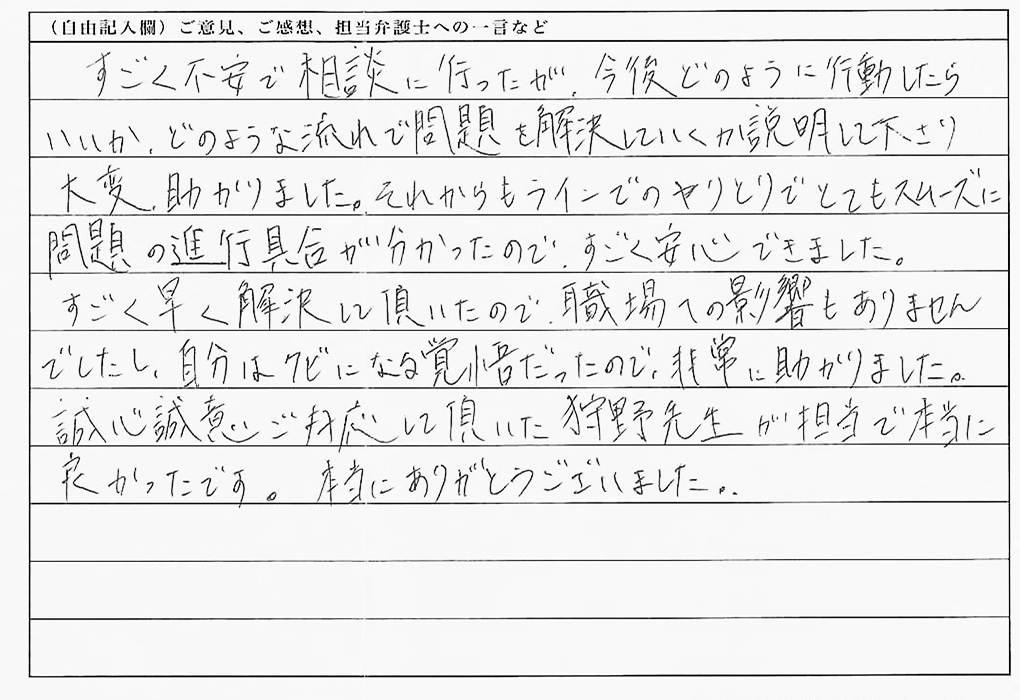 （自由記入欄）ご意見、ご感想、担当弁護士への一言など
すごく不安で相談に行ったが、今後どのように行動したら
いいか、どのような流れで問題を解決していくか説明して下さり
大変、助かりました。それからもラインでのやりとりでとてもスムーズに
問題の進行具合が分かったので、すごく安心できました。
すごく早く解決して頂いたので、職場への影響もありません
でしたし、自分はクビになる覚悟だったので、非常に助かりました。
誠心誠意ご対応して頂いた狩野先生が担当で本当に
良かったです。本当にありがとうございました。